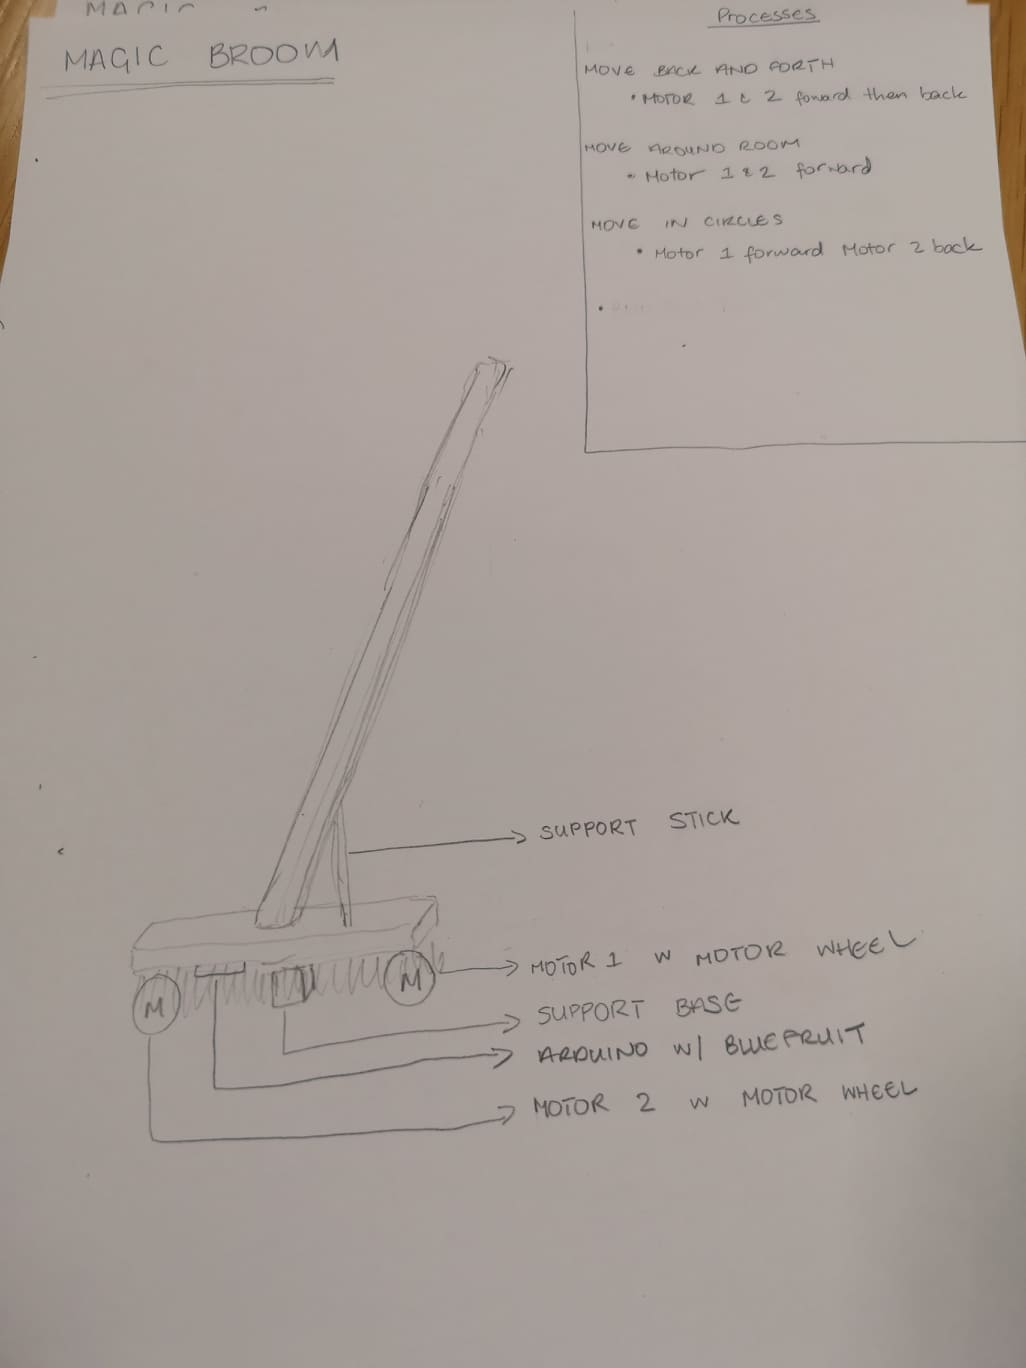 MAGIC
MAGIC BROOM
Processes
MOVE BACK AND FORTH
• MOTOR 1 & 2 foward then back
MOVE AROUND ROOM
• Motor 1 & 2 forward
MOVE IN CIRCLES
• Motor 1 forward Motor 2 back
•
SUPPORT STICK
MOTOR 1 W MOTOR WHEEL
SUPPORT BASE
ARDUINO W/ BLUEFRUIT
MOTOR 2 W MOTOR WHEEL
M
M